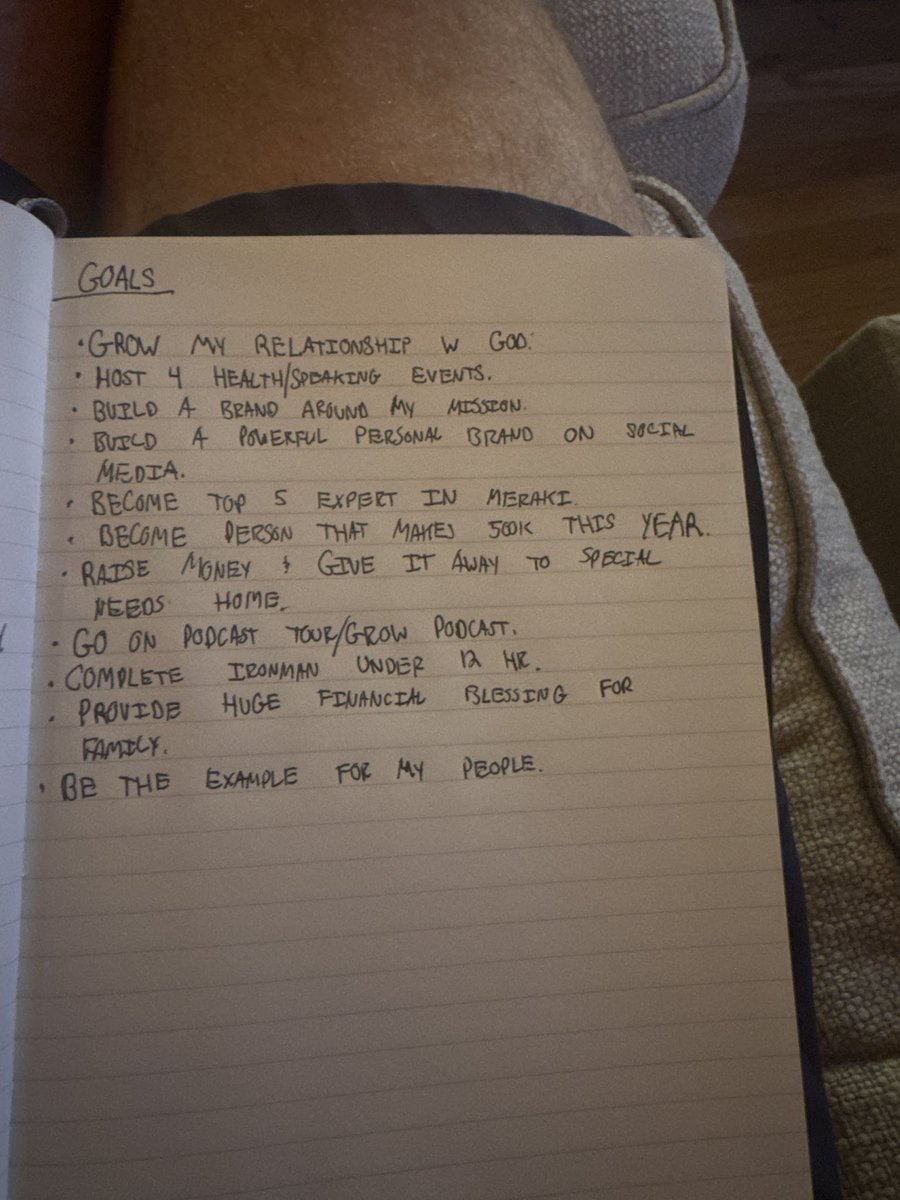 GOALS
• GROW MY RELATIONSHIP W GOD.
• HOST 4 HEALTH/SPEAKING EVENTS.
• BUILD A BRAND AROUND MY MISSION.
• BUILD A POWERFUL PERSONAL BRAND ON SOCIAL
MEDIA.
• BECOME TOP 5 EXPERT IN MERAKI.
• BECOME PERSON THAT MAKES 500K THIS YEAR.
• RAISE MONEY & GIVE IT AWAY TO SPECIAL
NEEDS HOME.
• GO ON PODCAST TOUR/GROW PODCAST.
• COMPLETE IRONMAN UNDER 12 HR.
• PROVIDE HUGE FINANCIAL BLESSING FOR
FAMILY.
• BE THE EXAMPLE FOR MY PEOPLE.